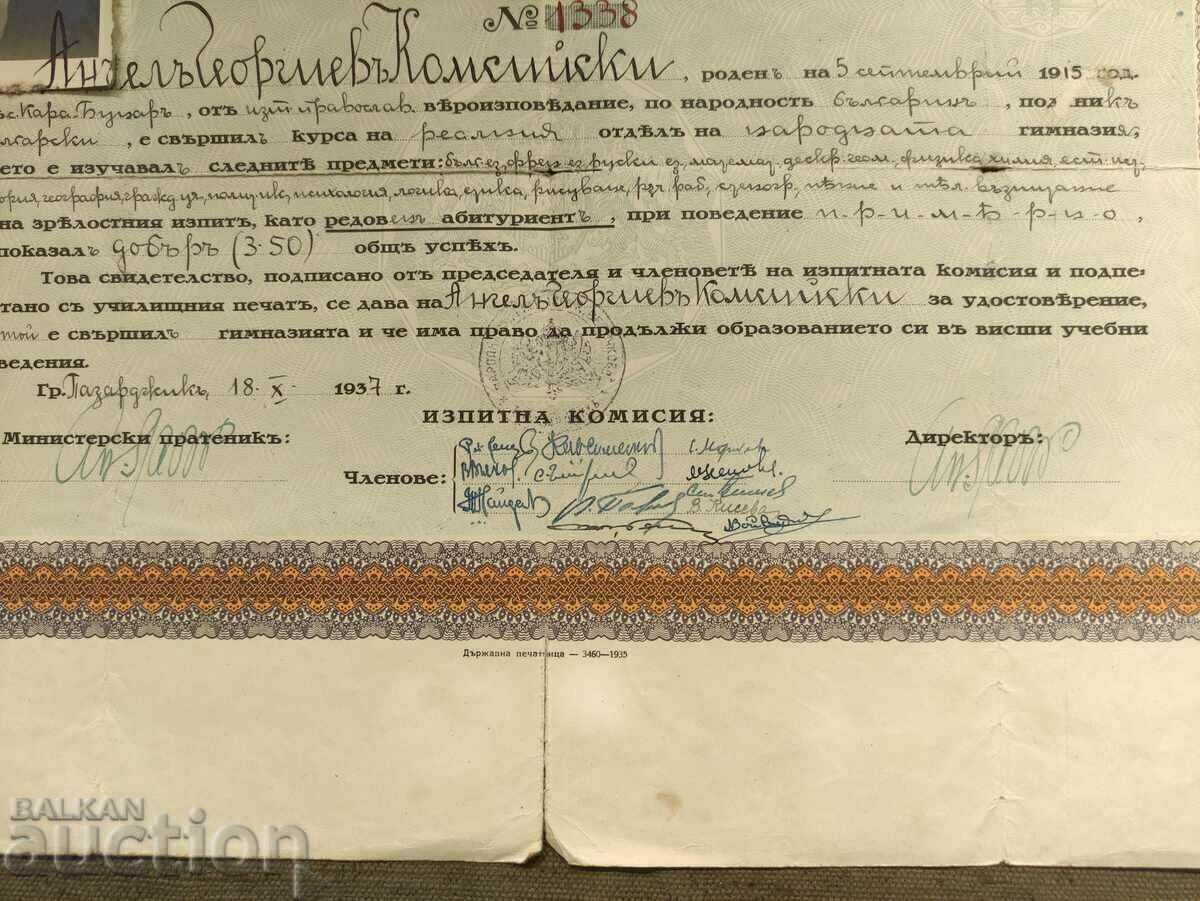 № 1338
Ангелъ Георгиевъ Комсийски, роденъ на 5 септемврий 1915 год.
с. Кара-Бунаръ, отъ изт. православ. вѣроизповѣдание, по народность българинъ, под никъ
лгарски, е свършилъ курса на реалния отдѣлъ на народната гимназия,
ето е изучавалъ следнитѣ предмети: бълг. ез., френ. ез., руски ез., математ., дескр. геом., физика, химия, ест. ис.,
ория, география, гражд. уч., психология, логика, етика, рисуване, рѫч. раб., стеногр., пѣние и тѣл. възпитание
на зрѣлостния изпитъ, като редовенъ абитуриентъ, при поведение п-р-и-м-ѣ-р-н-о,
показалъ добъръ (3.50) общъ успѣхъ.
Това свидетелство, подписано отъ председателя и членоветѣ на изпитната комисия и подпе-
тано съ училищния печатъ, се дава на Ангелъ Георгиевъ Комсийски за удостовѣрение,
той е свършилъ гимназията и че има право да продължи образованието си въ висши учебни
ведения.
Гр. Пазарджикъ, 18.X. 1937 г.
ИЗПИТНА КОМИСИЯ:
Министерски пратеникъ:
Директоръ:
Членове:
В. Кисева
Държавна печатница — 3460—1935
BALKAN
auction